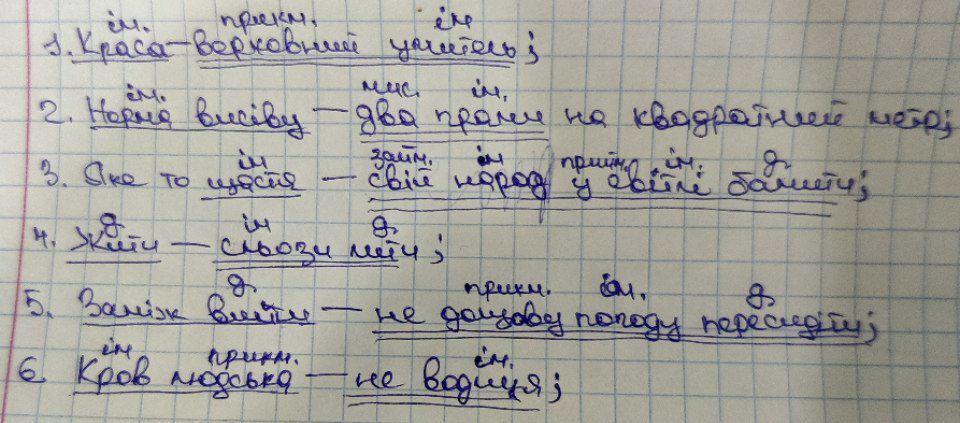 ім. прикм. ім
1. Краса – верховний учитель;
ім. чис. ім.
2. Норма висіву — два грами на квадратний метр;
ім займ. ім прийм. ім. д.
3. Яке то щастя — свій народ у світлі бачити;
д. ім д.
4. Жити — сльози лити;
д. прикм. ім. д.
5. Заміж вийти — не дощову погоду пересидіти;
ім. прикм. ім.
6 Кров людська — не водиця;